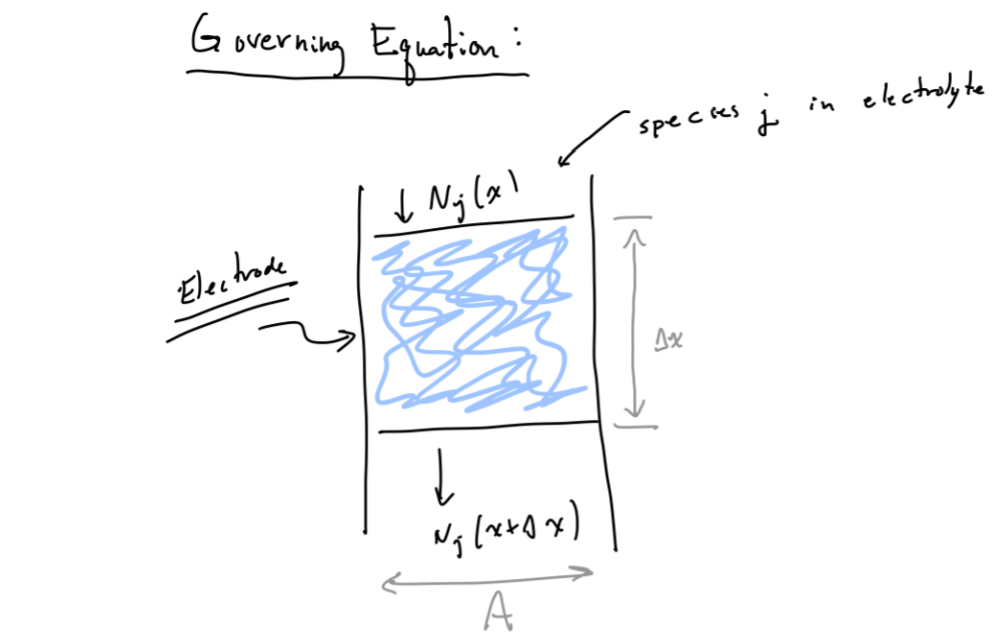 Governing Equation:
species j in electrolyte
↓ Nj(x)
Electrode
Δx
Nj(x+Δx)
A